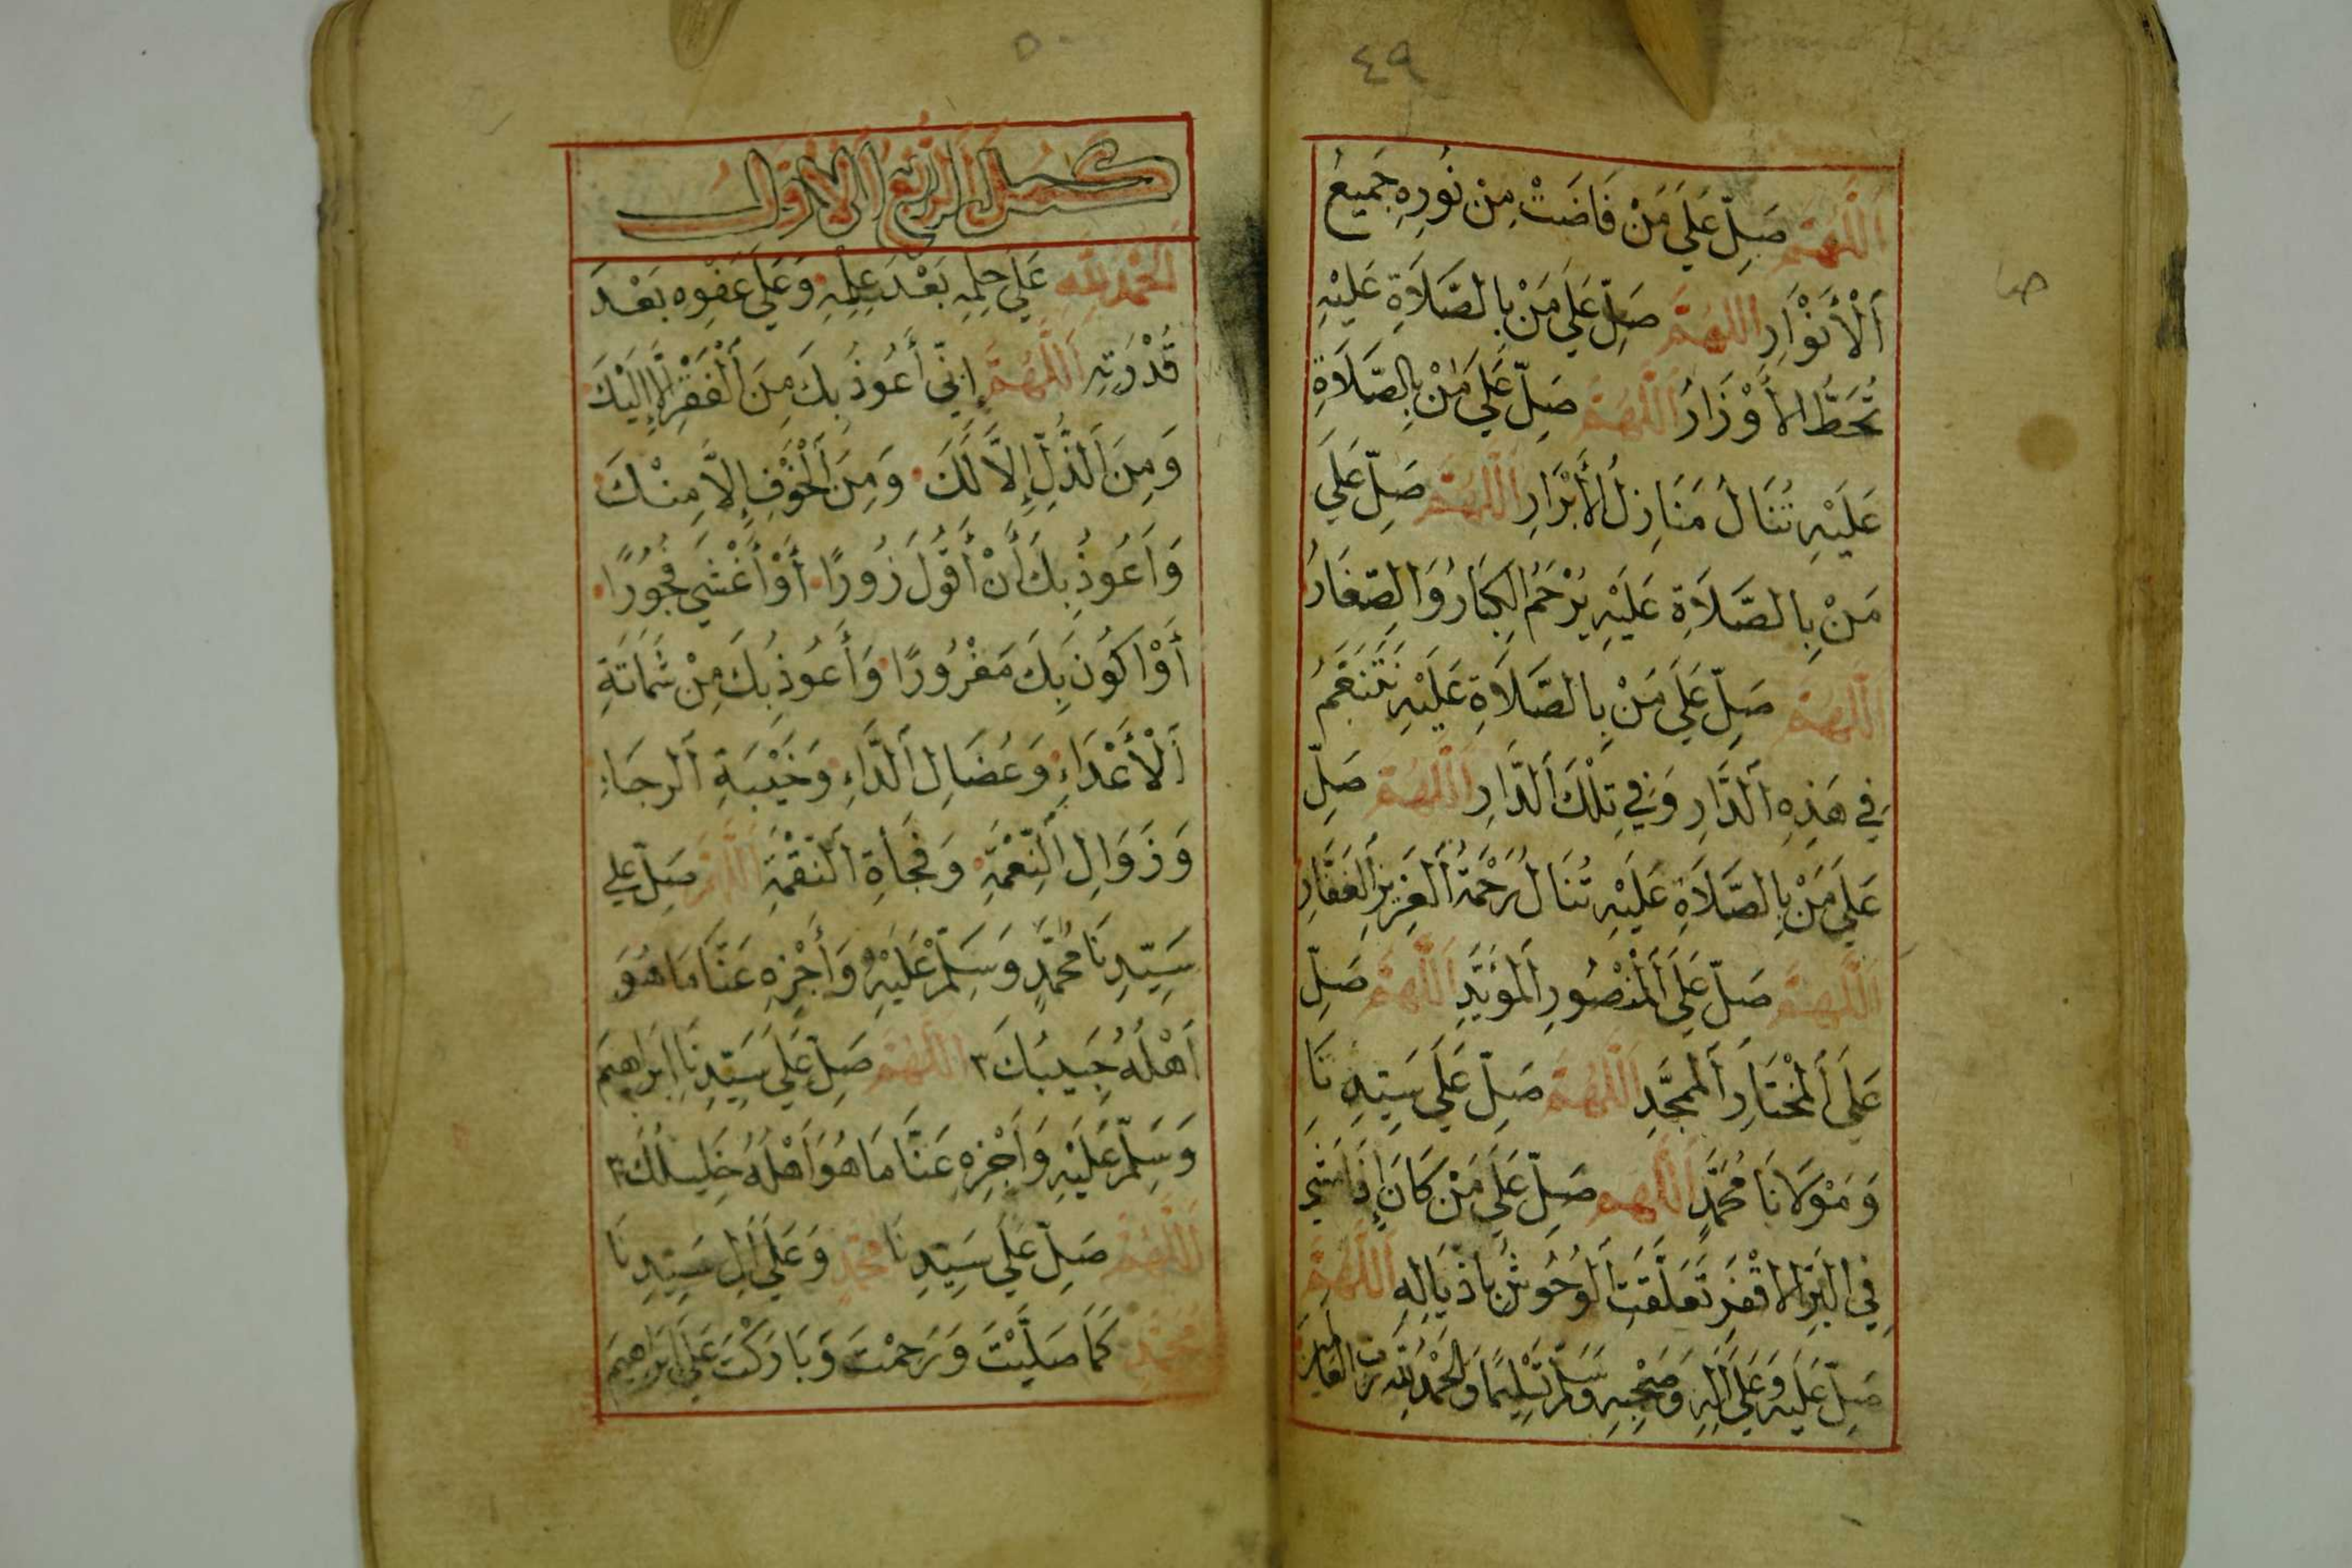 ٤٩
اَللَّهُمَّ صَلِّ عَلَى مَنْ فَاضَتْ مِنْ نُورِهِ جَمِيعُ
اَلْأَنْوَارِ اللهُمَّ صَلِّ عَلَى مَنْ بِالصَّلَاةِ عَلَيْهِ
تُحَطُّ الأَوْزَارُ اَللَّهُمَّ صَلِّ عَلَى مَنْ بِالصَّلَاةِ
عَلَيْهِ تُنَالُ مَنَازِلُ الأَبْرَارِ اَللَّهُمَّ صَلِّ عَلَى
مَنْ بِالصَّلَاةِ عَلَيْهِ يُرْحَمُ الكِبَارُ وَالصِّغَارُ
اَللَّهُمَّ صَلِّ عَلَى مَنْ بِالصَّلَاةِ عَلَيْهِ نَتَنَعَّمُ
فِي هَذِهِ اَلدَّارِ وَفِي تِلْكَ اَلدَّارِ اَللَّهُمَّ صَلِّ
عَلَى مَنْ بِالصَّلَاةِ عَلَيْهِ تُنَالُ رَحْمَةُ اَلعَزِيزِ اَلغَفَّارِ
اَللَّهُمَّ صَلِّ عَلَى اَلْمَنْصُورِ اَلمُؤَيَّدِ اَللَّهُمَّ صَلِّ
عَلَى اَلْمُخْتَارِ اَلْمُمَجَّدِ اَللَّهُمَّ صَلِّ عَلَى سَيِّدِنَا
وَمَوْلَانَا مُحَمَّدٍ اَللَّهُم صَلِّ عَلَى مَنْ كَانَ إِذَا مَشَى
فِي البَرِّ الاقْفَرِ تَعَلَّقَتِ اَلوُحُوشُ بِاذْيَالِهِ اَللَّهُمَّ
صَلِّ عَلَيْهِ وَعَلَى اَلِهِ وَصَحْبِهِ وَسَلِّمْ تَسْلِيمًا وَالحَمْدُ لِلَّهِ رَبِّ العَالَمِينَ
صا
٥٠
كمل الربع الاول
اَلحَمْدُ لِلَّهِ عَلَى حِلْمِهِ بَعْدَ عِلْمِهِ وَعَلَى عَفْوِهِ بَعْدَ
قُدْرَتِهِ اَللَّهُمَّ إِنِّي أَعُوذُ بِكَ مِنَ اَلْفَقْرِ إِلَّا إِلَيْكَ
وَمِنَ اَلذُّلِّ إِلاَّ لَكَ وَمِنَ اَلْخَوْفِ إِلاَّ مِنْكَ
وَأَعُوذُ بِكَ أَنْ أَقُولَ زُورًا أَوْ أَغْشَى فُجُورًا
أَوْ اكُونَ بِكَ مَغْرُورًا وَأَعُوذُ بِكَ مِنْ شَمَاتَةِ
اَلْأَعْدَاءِ وَعُضَالِ اَلدَّاءِ وَخَيْبَةِ اَلرجَاءِ
وَزَوَالِ اَلنِّعْمَةِ وَفَجْأَةِ اَلنّقْمَةِ اَللَّهُمَّ صَلِّ عَلى
سَيِّدِنَا مُحَمَّدٍ وَسَلِّمْ عَلَيْهِ وَأَجْزِهِ عَنَّا مَا هُوَ
اَهْلُهُ حَبِيبُكَ ٣ اَللَّهُمَّ صَلِّ عَلَى سَيِّدِنَا اِبْرَاهِيمَ
وَسَلِّمْ عَلَيْهِ وَأَجْزِهِ عَنَّا مَا هُوَ اَهْلُهُ خَلِيلُكَ ٣
اَللَّهُمَّ صَلِّ عَلَى سَيِّدِنَا مُحَمَّدٍ وَعَلَى اَلِ سَيِّدِنَا
مُحَمَّدٍ كَمَا صَلَّيْتَ وَرَحِمْتَ وَبَارَكْتَ عَلَى اِبْرَاهِيمَ